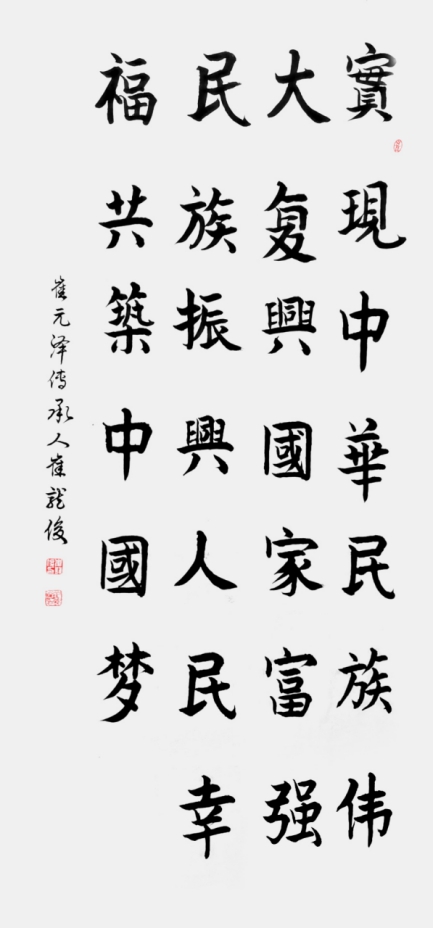 實現中華民族伟
大复興國家富强
民族振興人民幸
福共築中國梦
崔元泽传承人崔龍俊